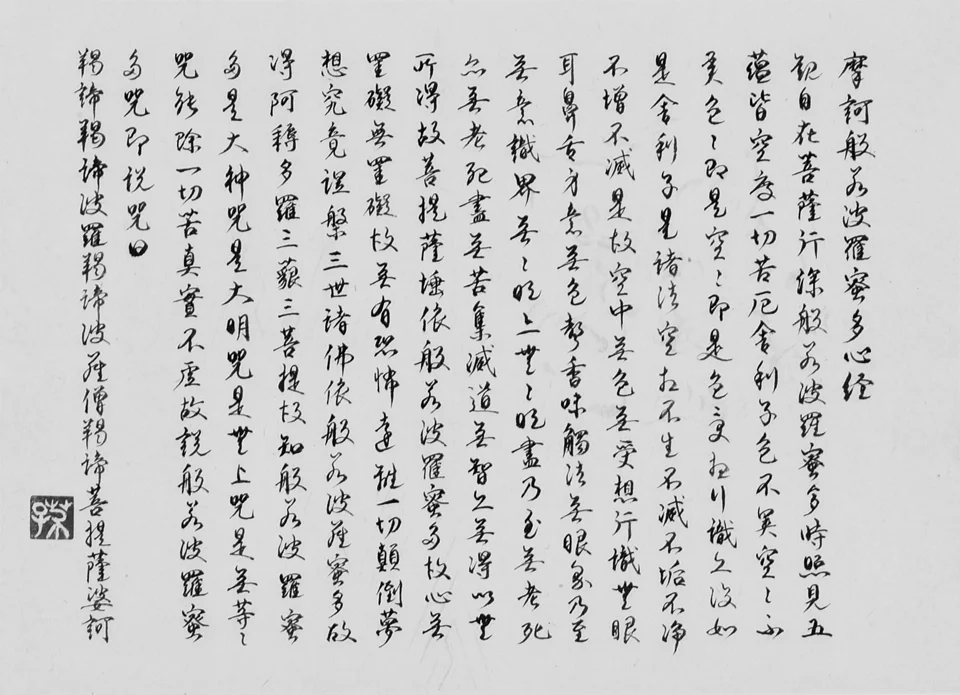 摩訶般若波羅蜜多心经
観自在菩薩行深般若波羅蜜多時照見五
蕴皆空度一切苦厄舍利子色不異空〻不
異色〻即是空〻即是色受想行識亦復如
是舍利子是諸法空相不生不滅不垢不净
不增不减是故空中无色无受想行識無眼
耳鼻舌身意无色声香味觸法无眼界乃至
无意識界无〻明亦無〻明盡乃至无老死
亦无老死盡无苦集滅道无智亦无得以無
所得故菩提薩埵依般若波羅蜜多故心无
罣礙無罣礙故无有恐怖遠離一切顛倒夢
想究竟涅槃三世諸佛依般若波羅蜜多故
得阿耨多羅三藐三菩提故知般若波羅蜜
多是大神咒是大明咒是無上咒是无等〻
咒能除一切苦真實不虚故説般若波羅蜜
多咒即説咒曰
羯諦羯諦波羅羯諦波羅僧羯諦菩提薩婆訶